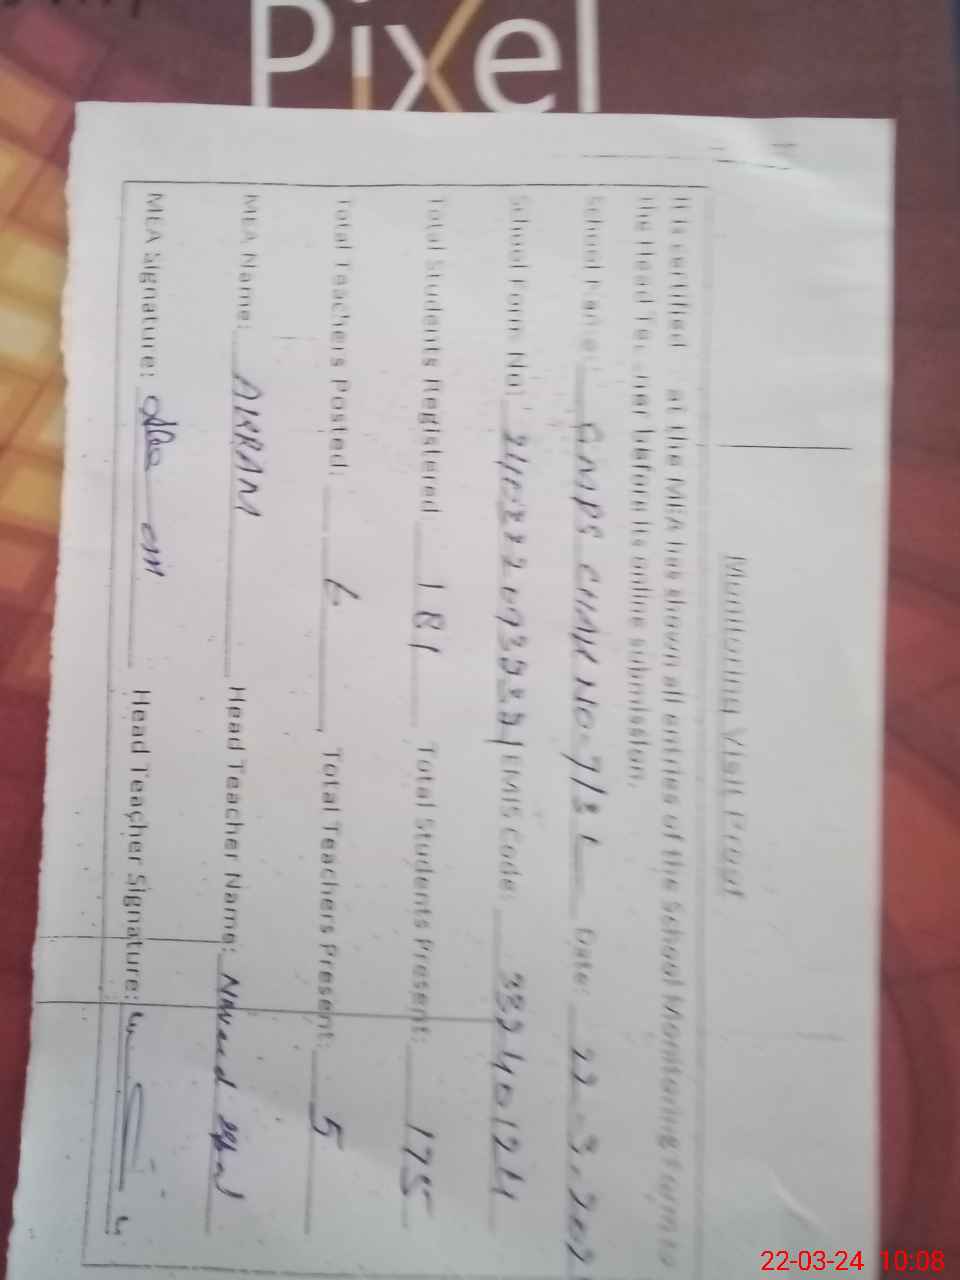 Pixel
Monitoring Visit Proof
It is certified at the MEA has shown all entries of the School Monitoring Form to
the Head Te cher before its online submission.
School Name: GMPS CHAK NO. 7/3 L Date: 22-3-202
School Form No: EMIS Code: 33340124
Total Students Registered: 181 Total Students Present: 175
Total Teachers Posted: 6 Total Teachers Present: 5
MEA Name: AKRAM Head Teacher Name: Naveed
MEA Signature: Head Teacher Signature:
22-03-24 10:08